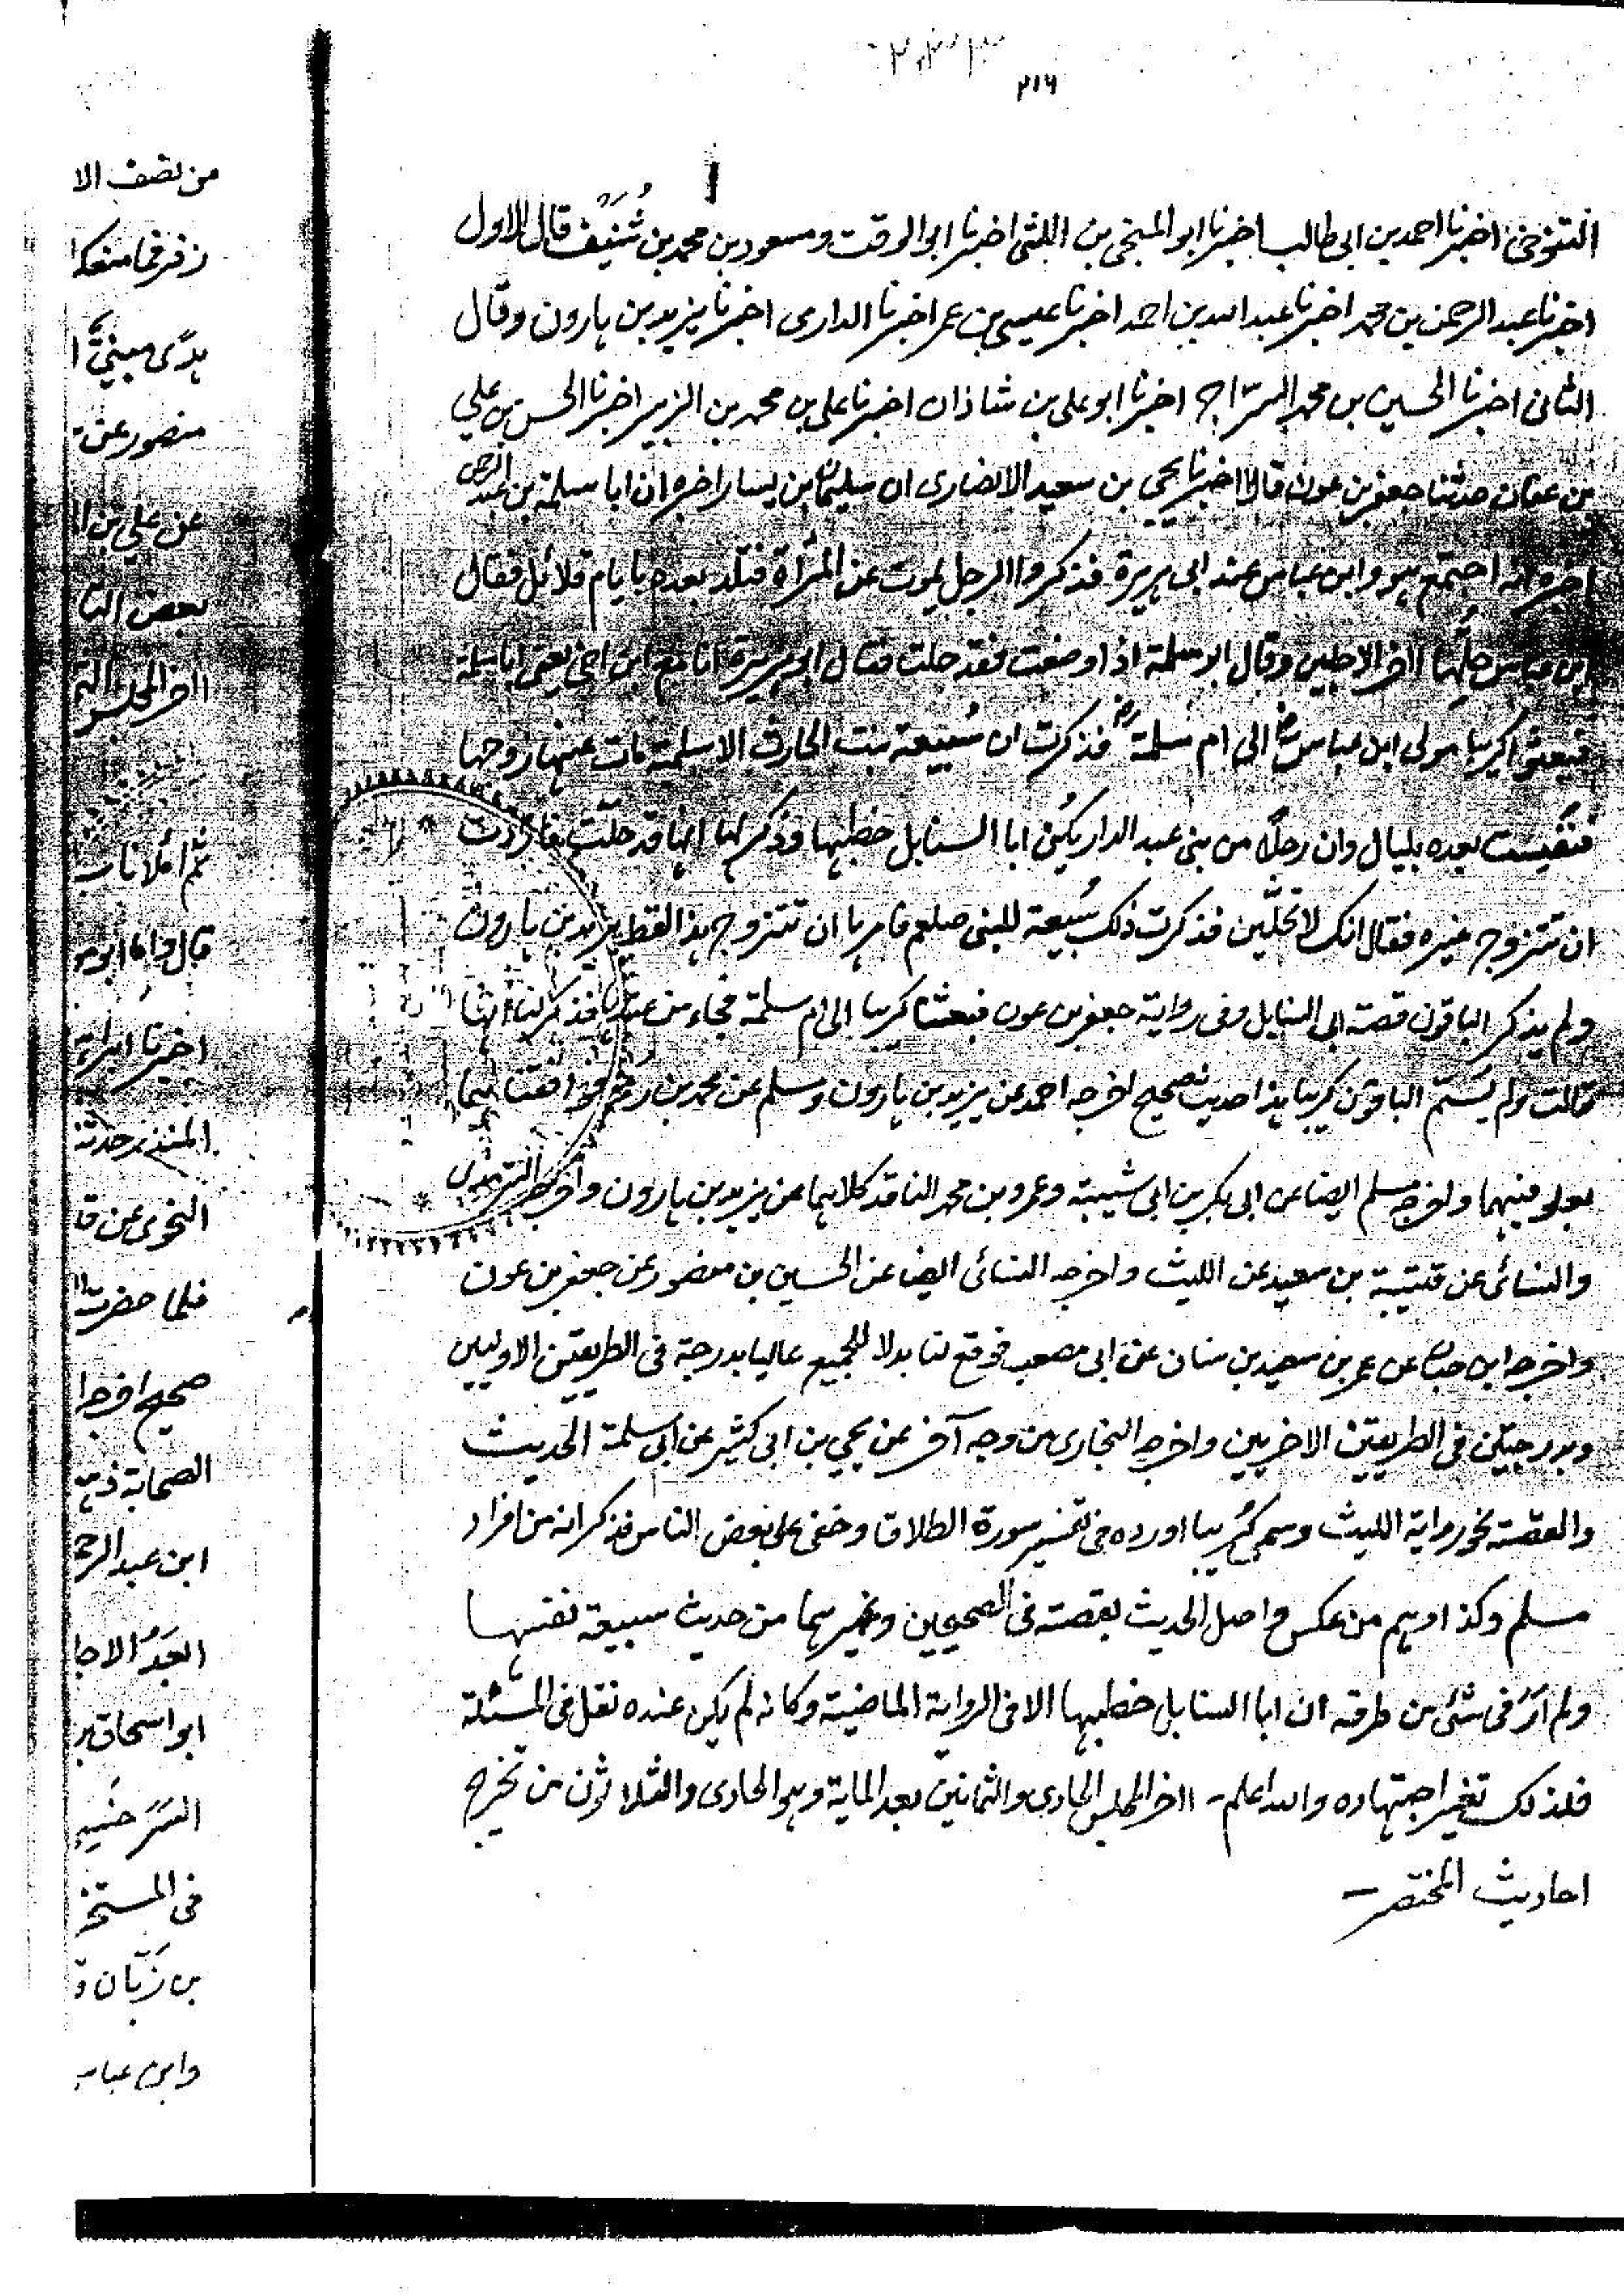 ٢١٦
التنوخي اخبرنا احمد بن ابي طالب اخبرنا ابو المنجي بن اللتي اخبرنا ابو الوقت ومسعود بن محمد بن شُنَيف قال الاول
اخبرنا عبد الرحمن بن محمد اخبرنا عبد الله بن احمد اخبرنا عيسى بن عمر اخبرنا الدارى اخبرنا يزيد بن هارون وقال
الثانى اخبرنا الحسين بن محمد السرّاج اخبرنا ابو على بن شاذان اخبرنا على بن محمد بن الزبير اخبرنا الحسن بن علي
بن عفان حدثنا جعفر بن عون قالا اخبرنا يحيى بن سعيد الانصارى ان سليمان بن يسار اخبره ان ابا سلمة بن عبد الرحمن
اخبره انه اجتمع هو وابن عباس عند ابى هريرة فذكروا الرجل يموت عن المرأة فتلد بعده بايام قلائل فقال
ابن عباس حلّها اخر الاجلين وقال ابو سلمة اذا وضعت فقد حلت فقال ابو هريرة انا مع ابن اخي يعنى ابا سلمة
فبعثوا كريبا مولى ابن عباس الى ام سلمة فذكرت ان سُبيعة بنت الحارث الاسلمية مات عنها زوجها
فنفست بعده بليال وان رجلاً من بنى عبد الدار يكنى ابا السنابل خطبها وذكر لها انها قد حلّت فارادت
ان تتزوج غيره فقال انك لا تحلّين فذكرت ذلك سُبيعة للنبى صلعم فامرها ان تتزوج هذا لفظ يزيد بن هارون
ولم يذكر الباقون قصة ابى السنابل وفى رواية جعفر بن عون فبعثنا كريبا الى ام سلمة فجاء من عندها فذكر لنا انها
قالت ولم يسمّ الباقون كريبا هذا حديث صحيح اخرجه احمد عن يزيد بن هارون ومسلم عن محمد بن رمح فوافقناهما
بعلو فيهما واخرجه مسلم ايضا عن ابى بكر بن ابى شيبة وعمرو بن محمد الناقد كلاهما عن يزيد بن هارون واخرجه الترمذى
والنسائى عن قتيبة بن سعيد عن الليث واخرجه النسائى ايضا عن الحسين بن منصور عن جعفر بن عون
واخرجه ابن حبان عن عمر بن سعيد بن سنان عن ابى مصعب فوقع لنا بدلا للجميع عاليا بدرجة فى الطريقين الاوليين
وبدرجتين فى الطريقين الاخريين واخرجه البخارى من وجه آخر عن يحيي بن ابى كثير عن ابى سلمة الحديث
والقصة نحو رواية الليث وسمى كُريبا اورده فى تفسير سورة الطلاق وخفى على بعض الناس فذكر انه من افراد
مسلم وكذا وهم من عكس واصل الحديث بقصته فى الصحيحين وغيرهما من حديث سبيعة نفسها
ولم ارَ فى شئى من طرقه ان ابا السنابل خطبها الا فى الرواية الماضية وكانه لم يكن عنده نقل فى المسئلة
فلذلك تغير اجتهاده والله اعلم - اخر المجلس الحادى والثمانين بعد الماية وهو الحادى والثلاثون من تخريج
احاديث المختصر -
من نصف الا
زفر فما منعك
هدًى مبنيّ ا
منصور عن
عن علي بن ا
بعض النا
اخر المجلس الث
ثم املانا
قال وانا ابو
اخبرنا ابراه
المنذر حدثنا
النحوى عن ق
فلما حضرت
صحيح اخرجا
الصحابة
ابن عبد الرح
العَدّ الاجا
ابو اسحاق بر
السَرَخسي
فى المستخر
بن زَبّان
وابن عبا